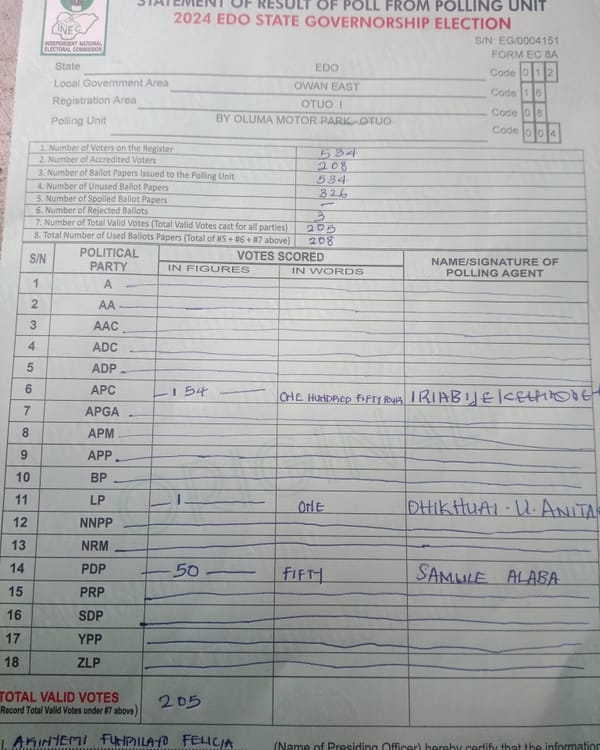 STATEMENT OF RESULT OF POLL FROM POLLING UNIT
2024 EDO STATE GOVERNORSHIP ELECTION
INEC
INDEPENDENT NATIONAL
ELECTORAL COMMISSION
S/N: EG/0004151
FORM EC 8A
State EDO Code 0 1 2
Local Government Area OWAN EAST Code 1 6
Registration Area OTUO I Code 0 8
Polling Unit BY OLUMA MOTOR PARK-OTUO Code 0 0 4
1. Number of Voters on the Register 534
2. Number of Accredited Voters 208
3. Number of Ballot Papers Issued to the Polling Unit 534
4. Number of Unused Ballot Papers 326
5. Number of Spoiled Ballot Papers –
6. Number of Rejected Ballots 3
7. Number of Total Valid Votes (Total Valid Votes cast for all parties) 205
8. Total Number of Used Ballots Papers (Total of #5 + #6 + #7 above) 208
S/N POLITICAL PARTY VOTES SCORED NAME/SIGNATURE OF POLLING AGENT
IN FIGURES IN WORDS
1 A
2 AA
3 AAC
4 ADC
5 ADP
6 APC 154 ONE HUNDRED FIFTY FOUR
7 APGA
8 APM
9 APP
10 BP
11 LP 1 ONE OHIKHUAI . U. ANITA
12 NNPP
13 NRM
14 PDP 50 FIFTY SAMULE ALABA
15 PRP
16 SDP
17 YPP
18 ZLP
ORIGINAL
TOTAL VALID VOTES 205
(Record Total Valid Votes under #7 above)
I, AKINYEMI FUNMILAYO FELICIA (Name of Presiding Officer) hereby certify that the information